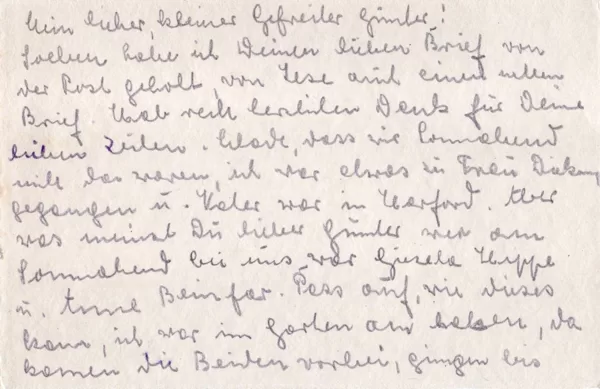 Mein lieber, kleiner Gefreiter Günter!
Soeben habe ich Deinen lieben Brief von
der Post geholt, von Ilse auch einen netten
Brief. Hab recht herzlichen Dank für Deine
lieben Zeilen. Schade, dass wir Sonnabend
nicht da waren, ich war etwas zu Frau
gegangen u. Vater war in Herford. Aber
was meinst Du lieber Günter wer am
Sonnabend bei uns war Gisela Heppe
u. Anne. Pass auf, wie dieses
kam, ich war im Garten am haben, da
kamen die Beiden vorbei, gingen bis